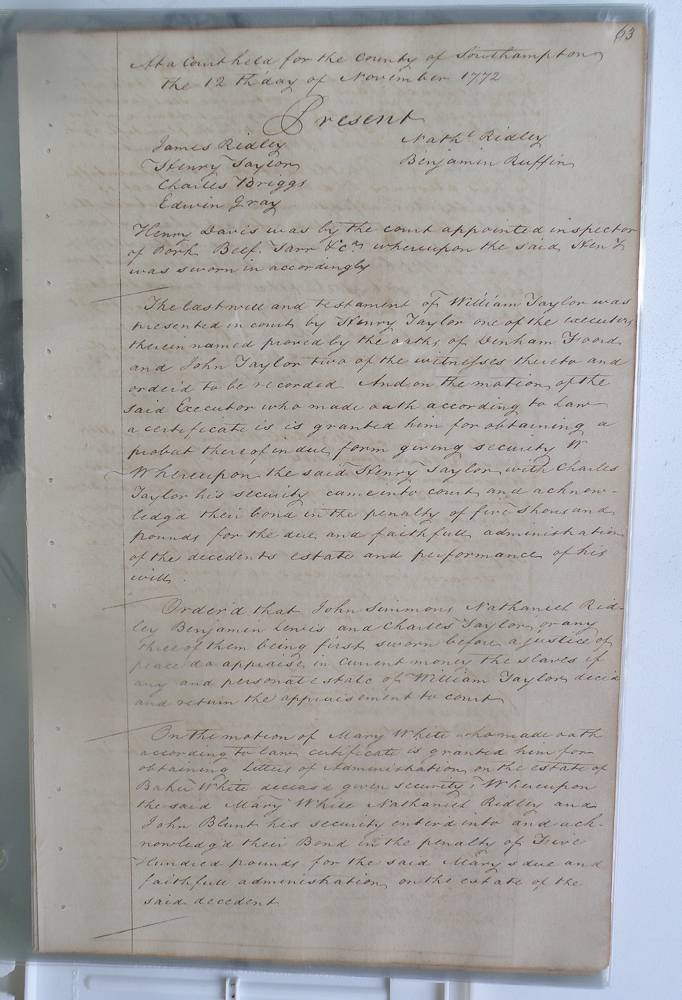 63
At a Court held for the County of Southampton
the 12th day of November 1772
Present
James Ridley
Henry Taylor
Charles Briggs
Edwin Gray
Nathl Ridley
Benjamin Ruffin
Henry Davis was by the court appointed inspector
of Pork Beef Tarr &c whereupon the said Heny
was sworn in accordingly
The last will and testament of William Taylor was
presented in court by Henry Taylor one of the executors
therein named proved by the oaths of Denham Foord
and John Taylor two of the witnesses thereto and
order'd to be recorded And on the motion of the
said Executor who made oath according to Law
a certificate is is granted him for obtaining a
probat thereof in due form giving security
Whereupon the said Henry Taylor with Charles
Taylor his security came into court and acknow-
ledg'd their bond in the penalty of five thousand
pounds for the due and faithfull administration
of the decedents estate and performance of his
will.
Order'd that John Simmons Nathaniel Rid-
ley Benjamin Lewis and Charles Taylor or any
three of them being first sworn before a justice of
peace do appraise in current money the slaves if
any and personal estate of William Taylor decd
and return the appraisement to court
On the motion of Mary White who made oath
according to law certificate is granted him for
obtaining letters of Administration on the estate of
White deceasd given security, Whereupon
the said Mary White Nathaniel Ridley and
John Blunt his security enterd into and ack-
nowledg'd their Bond in the penalty of Five
Hundred pounds for the said Mary's due and
faithfull administration on the estate of the
said decedent